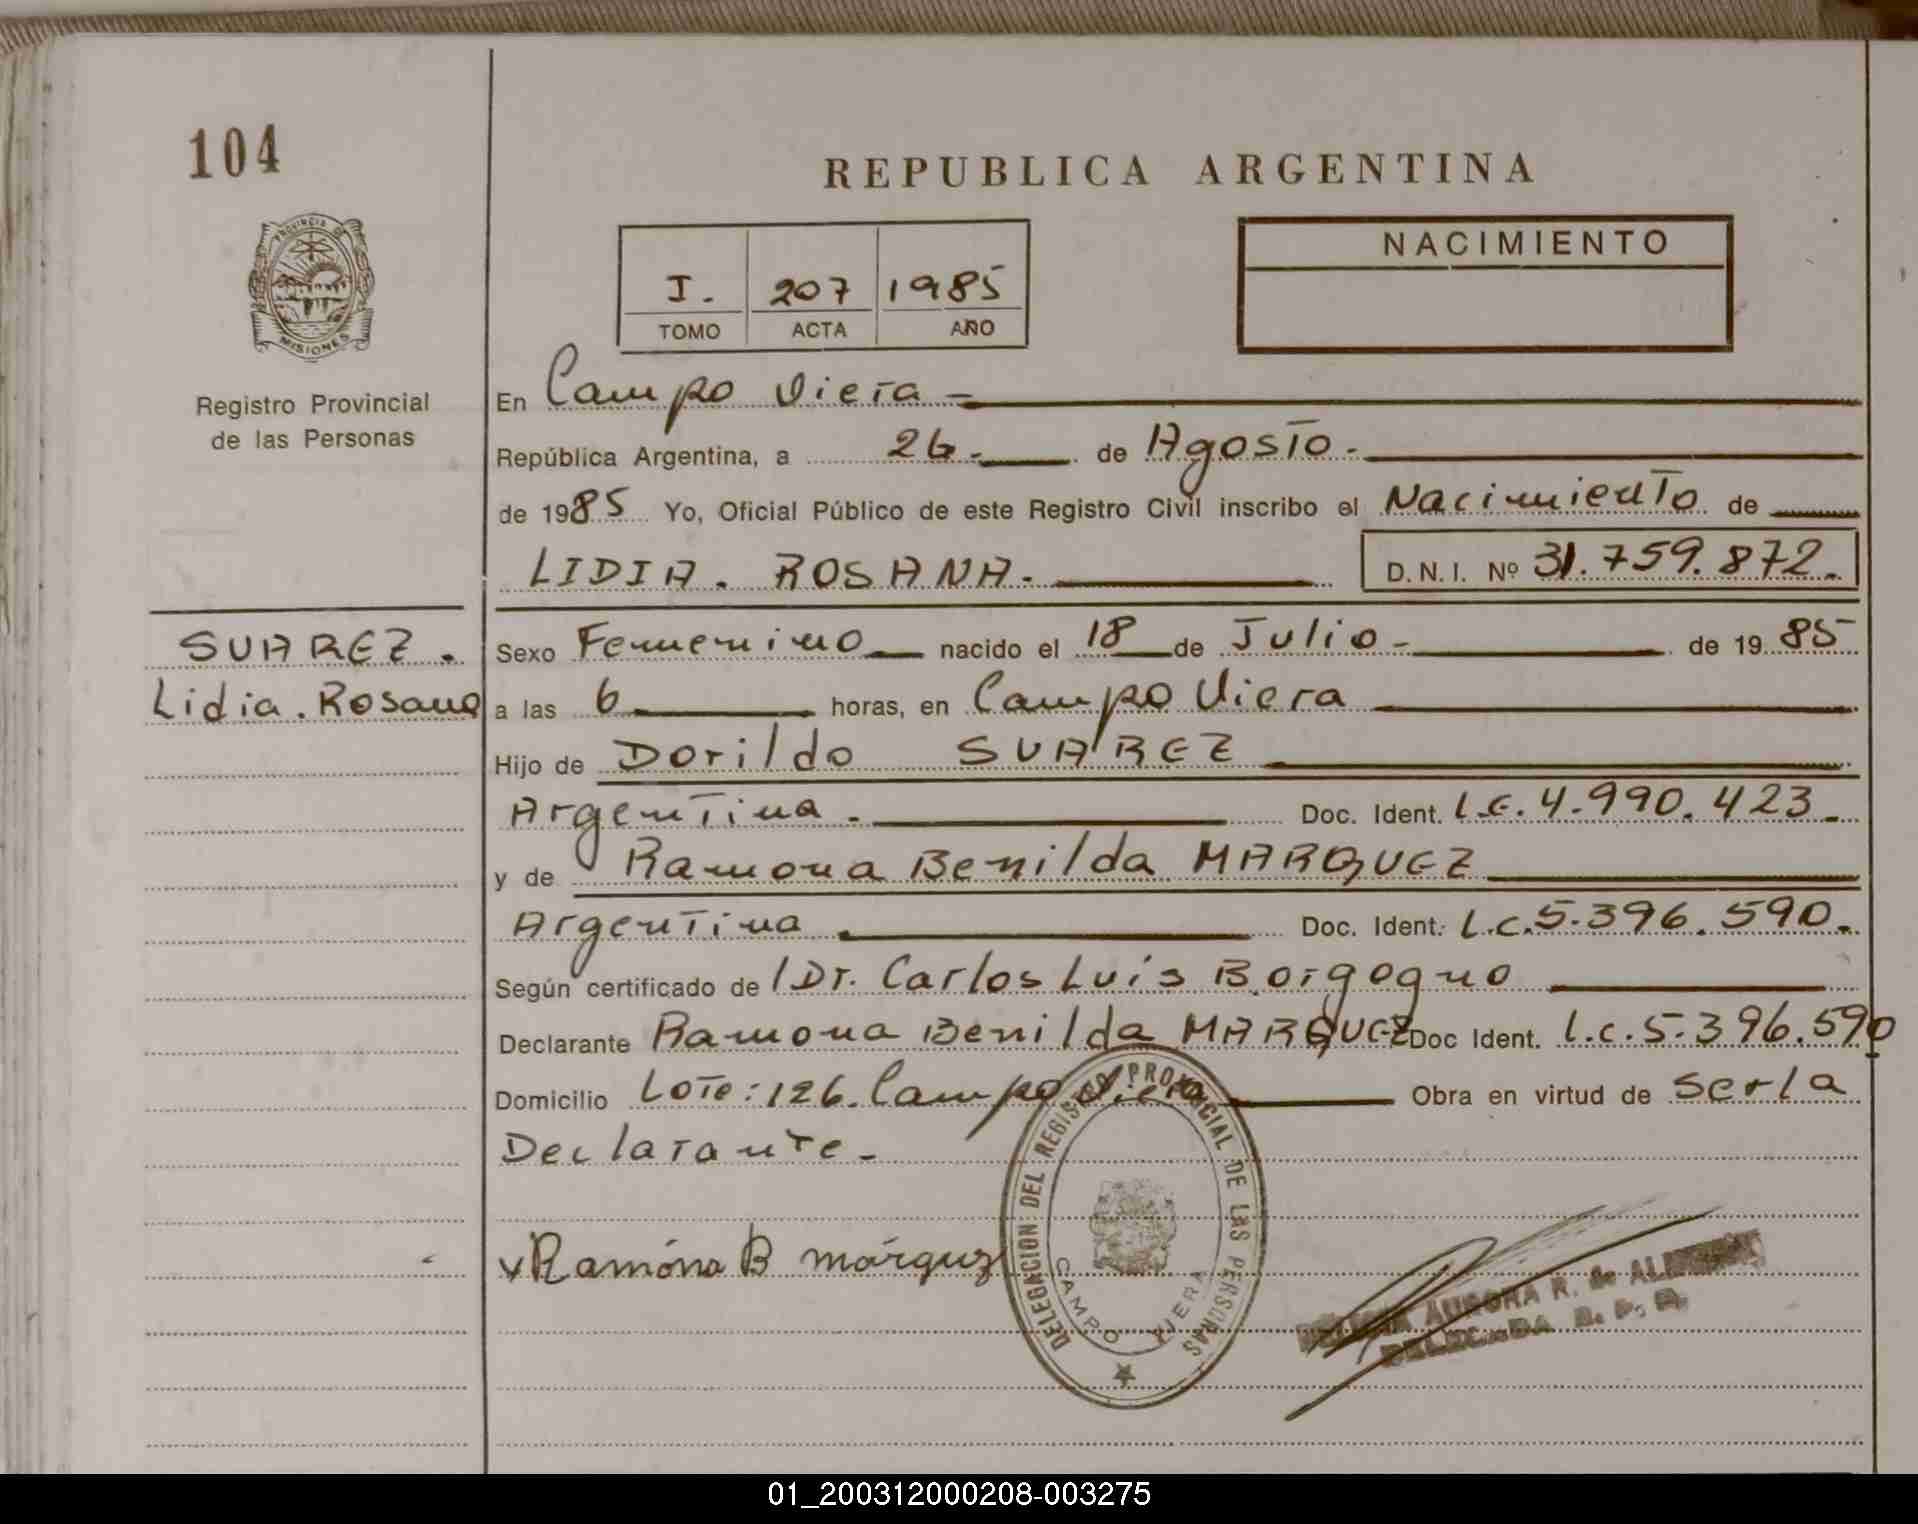 104
REPUBLICA ARGENTINA
PROVINCIA DE
MISIONES
Registro Provincial
de las Personas
I. 207 1985
TOMO ACTA AÑO
NACIMIENTO
En Campo Viera -
República Argentina, a 26 - de Agosto -
de 1985 Yo, Oficial Público de este Registro Civil inscribo el Nacimiento de
LIDIA . ROSANA - D.N.I. Nº 31.759.872.
SUAREZ .
Lidia . Rosana
Sexo Femenino nacido el 18 de Julio - de 1985
a las 6 horas, en Campo Viera
Hijo de Dorildo SUAREZ
Argentina . Doc. Ident. L.E. 4.990.423 -
y de Ramona Benilda MARQUEZ
Argentina . Doc. Ident. L.C. 5.396.590.
Según certificado de l Dr. Carlos Luis Borgogno
Declarante Ramona Benilda MARQUEZ Doc Ident. L.C. 5.396.590
Domicilio Lote: 126. Campo Viera Obra en virtud de ser la
Declarante -
Ramóna B márquz
DELEGACION DEL REGISTRO PROVINCIAL DE LAS PERSONAS
CAMPO VIERA
AURORA R. de
DELEGADA R. P. P.
01_200312000208-003275